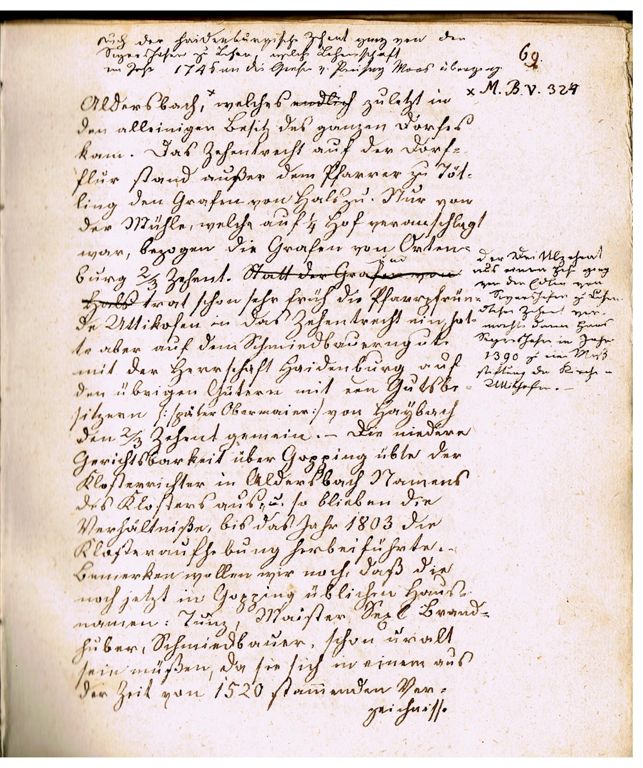 Auch der Haidenburgische Zehent ging von den
zu Lehen, welche Lehenschaft
im Jahr 1745 an die Grafen v. Preising Moos überging
69.
x M. B. V. 324
Aldersbach,x welches endlich zuletzt in
den alleinigen Besitz des ganzen Dorfes
kam. Das Zehentrecht auf der Dorf-
flur stand außer dem Pfarrer zu Föt-
ling den Grafen von Hals zu. Nur von
der Mühle, welche auf ¼ Hof veranschlagt
war, bezogen die Grafen von Orten-
burg 2/3 Zehent. Statt der Grafen von
Hals trat schon sehr früh die Pfarrpfrün-
de Uttikofen in das Zehentrecht ein, hat-
te aber auf dem Schmiedbauerngute
mit der Herrschaft Haidenburg auf
den übrigen Gütern mit den Gutsbe-
sitzern /:später Obermaier:/ von Haybach
den 2/3 Zehent gemein. – Die niedere
Gerichtsbarkeit über Gopping übte der
Klosterrichter in Aldersbach Namens
des Klosters aus, u. so blieben die
Verhältniße, bis das Jahr 1803 die
Klosteraufhebung herbeiführte. –
Bemerken wollen wir noch, daß die
noch jetzt in Gopping üblichen Haus-
namen: Tunz, Maister, Brand-
huber, Schmiedbauer, schon uralt
sein müßen, da sie sich in einem aus
der Zeit von 1520 stammenden Ver-
zeichnisse
aus einem Hof ging
von den Edlen von
zu Lehen.
Diesen Zehent ver-
machte dann Hans
im Jahre
1390 zu einer Meß
stiftung der Kirche
Uttikofen. –